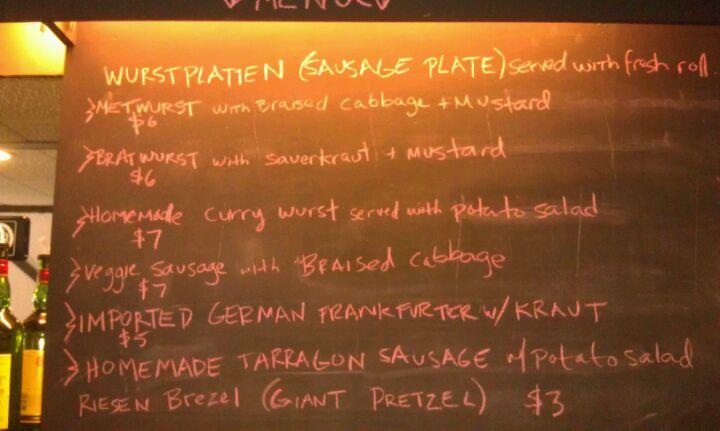 MENU
WURSTPLATTEN (SAUSAGE PLATE) served with fresh roll
METWURST with Braised Cabbage + Mustard
$6
BRATWURST with sauerkraut + MUSTARD
$6
HOMEMADE curry wurst served with potato salad
$7
Veggie Sausage with BRAISED Cabbage
$7
IMPORTED GERMAN FRANKFURTER w/ KRAUT
$5
HOMEMADE TARRAGON SAUSAGE w/ potato salad
RIESEN Brezel (GIANT PRETZEL) $3